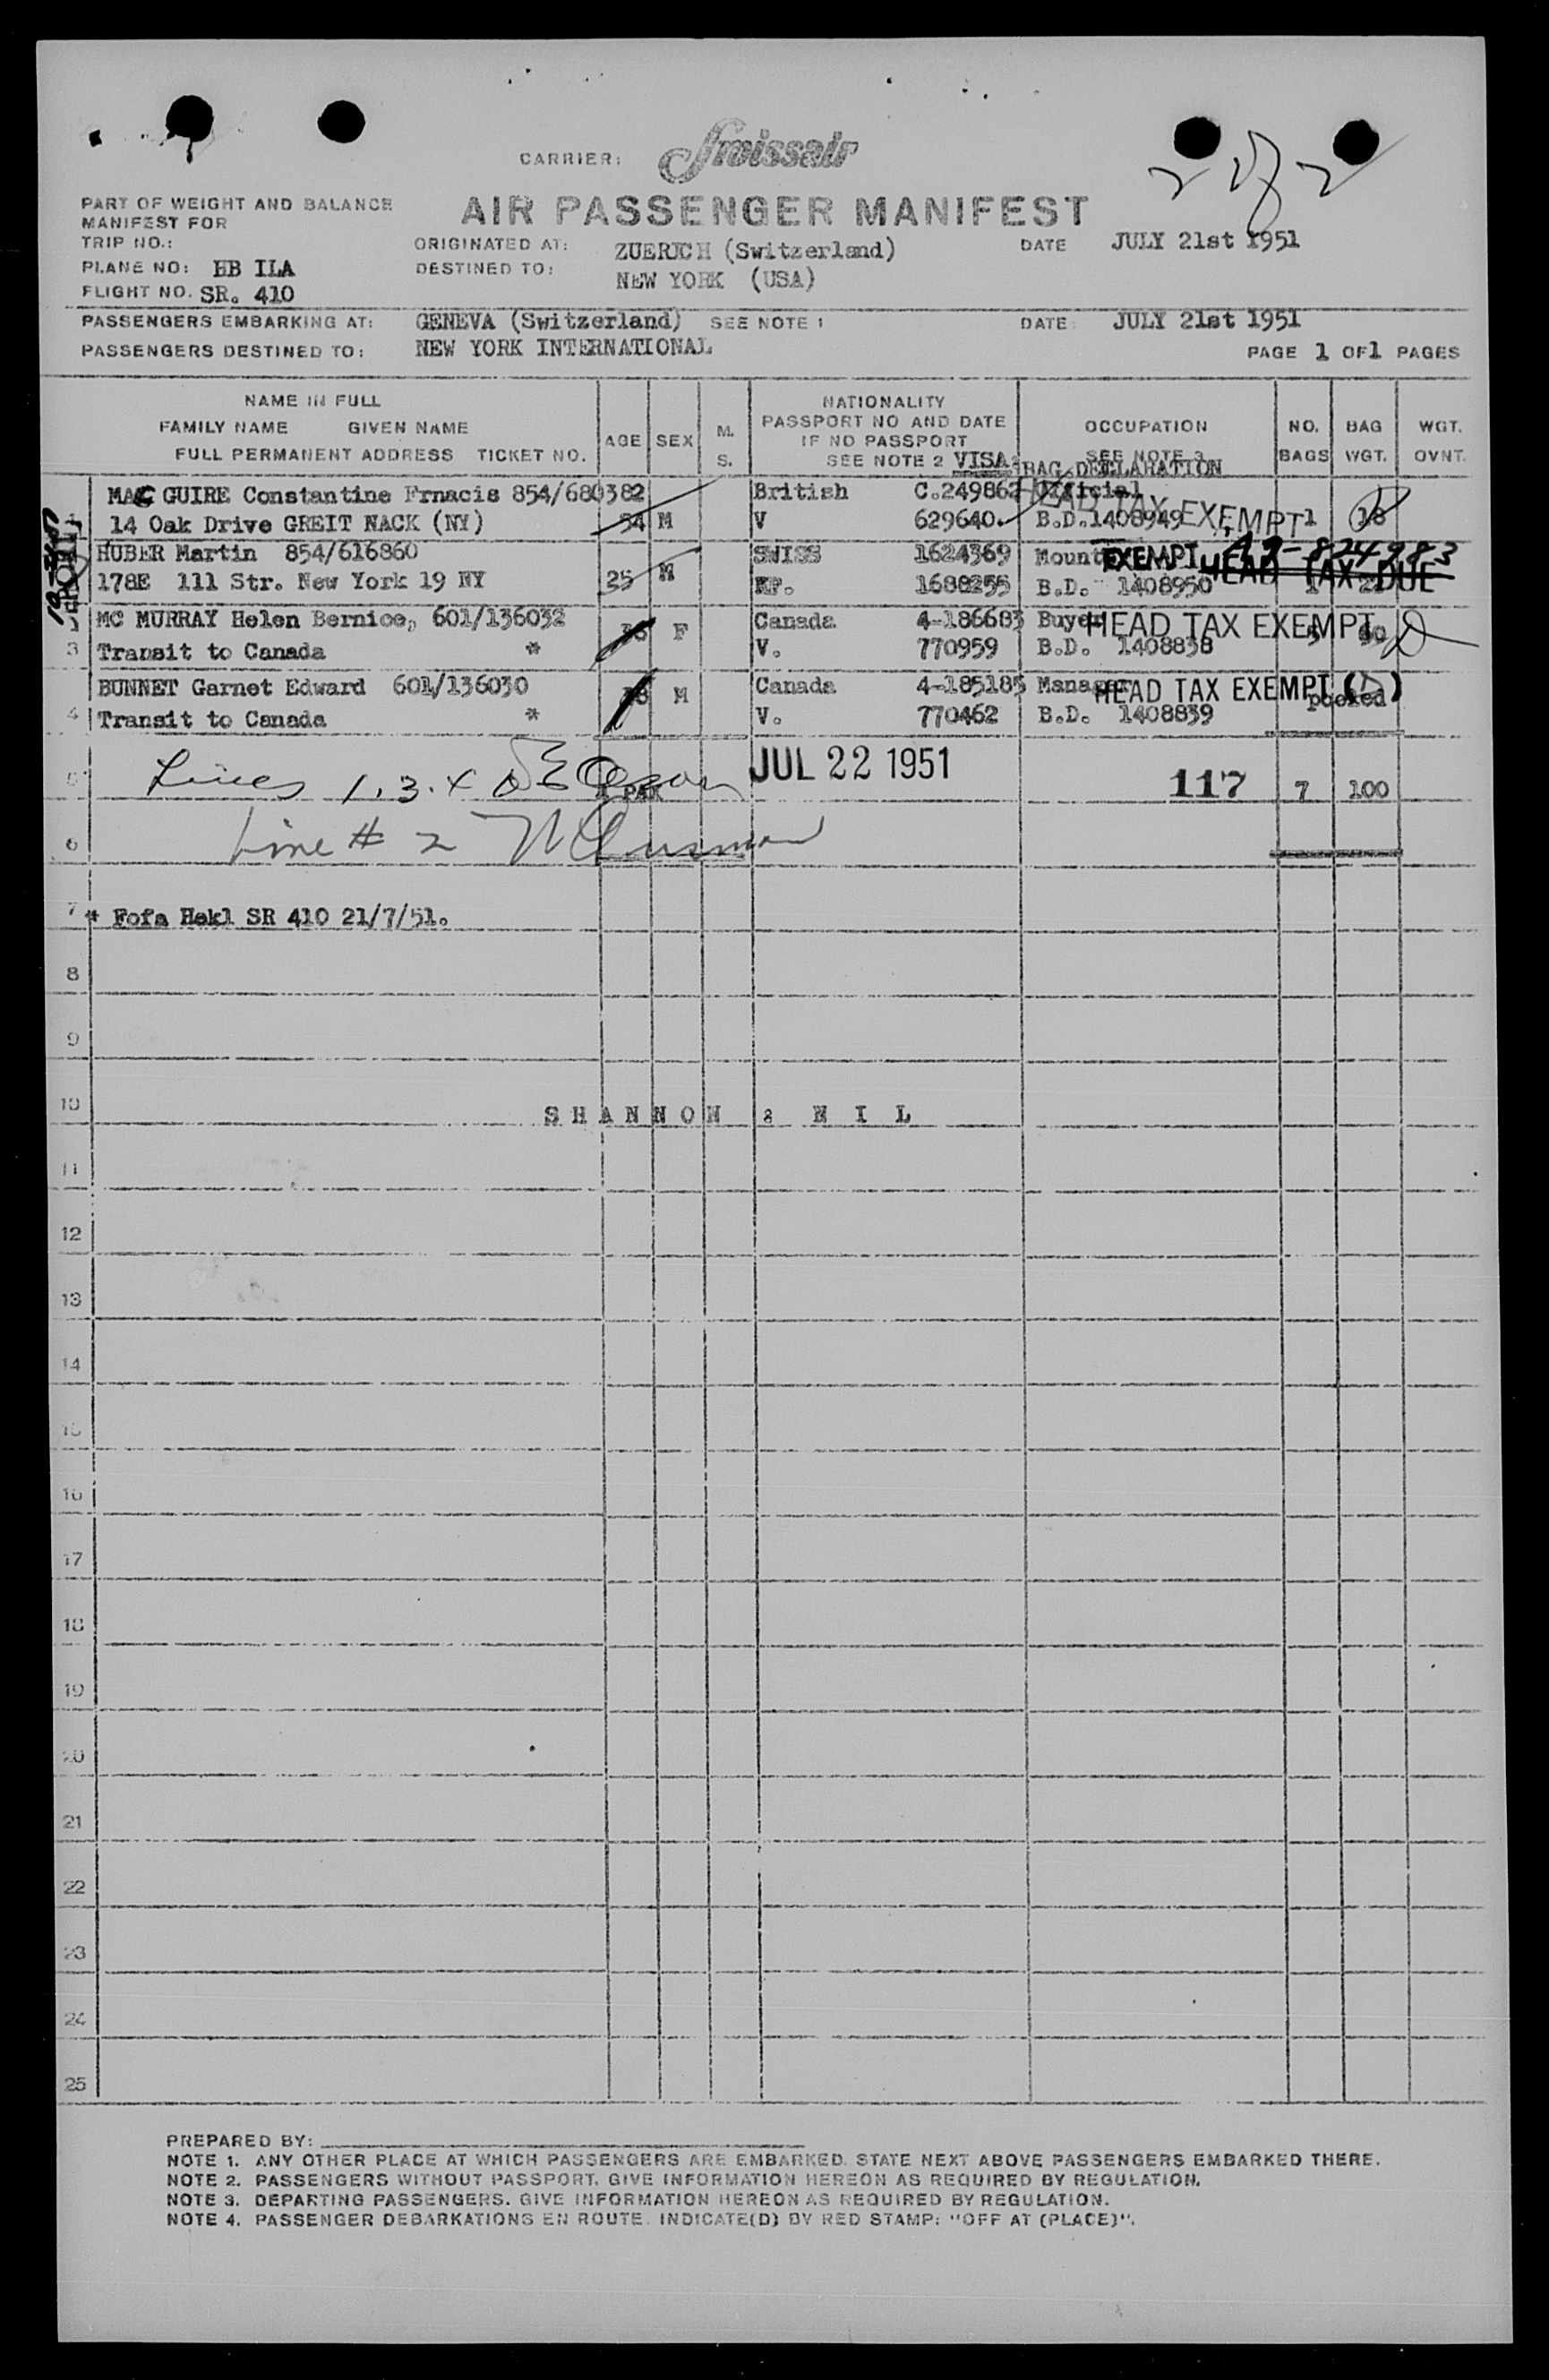 CARRIER: Swissair
2 of 2
PART OF WEIGHT AND BALANCE
MANIFEST FOR
AIR PASSENGER MANIFEST
TRIP NO.:
ORIGINATED AT: ZUERICH (Switzerland) DATE JULY 21st 1951
PLANE NO: HB ILA
DESTINED TO: NEW YORK (USA)
FLIGHT NO. SR. 410
PASSENGERS EMBARKING AT: GENEVA (Switzerland) SEE NOTE 1 DATE: JULY 21st 1951
PASSENGERS DESTINED TO: NEW YORK INTERNATIONAL PAGE 1 OF 1 PAGES
NAME IN FULL
FAMILY NAME GIVEN NAME
FULL PERMANENT ADDRESS TICKET NO.
AGE SEX M. S.
NATIONALITY
PASSPORT NO AND DATE
IF NO PASSPORT
SEE NOTE 2 VISA:
OCCUPATION
SEE NOTE 3
BAG.DECLARATION
NO. BAGS
BAG WGT.
WGT. OVNT.
MAC GUIRE Constantine Frnacis 854/680382 British C.249862 Official
14 Oak Drive GREIT NACK (NY) 54 M V 629640. B.D.1408949 HEAD TAX EXEMPT 1 18
HUBER Martin 854/616860 SWISS 1624369 EXEMPT A7-824983
178E 111 Str. New York 19 NY 25 M RP. 1688255 B.D. 1408950 HEAD TAX DUE 1
MC MURRAY Helen Bernice, 601/136032 F Canada 4-186683 Buyer HEAD TAX EXEMPT
3 Transit to Canada * V. 770959 B.D. 1408838 5
BUNNET Garnet Edward 601/136030 38 M Canada 4-185185 Manager HEAD TAX EXEMPT (D)
4 Transit to Canada * V. 770462 B.D. 1408839 pooled
5 Lines 1.3.4 PAX JUL 22 1951 117 7 100
6 Line # 2
7 * Fofa Hekl SR 410 21/7/51.
8
9
10 SHANNON : NIL
11
12
13
14
15
16
17
18
19
20
21
22
23
24
25
PREPARED BY:
NOTE 1. ANY OTHER PLACE AT WHICH PASSENGERS ARE EMBARKED. STATE NEXT ABOVE PASSENGERS EMBARKED THERE.
NOTE 2. PASSENGERS WITHOUT PASSPORT. GIVE INFORMATION HEREON AS REQUIRED BY REGULATION.
NOTE 3. DEPARTING PASSENGERS. GIVE INFORMATION HEREON AS REQUIRED BY REGULATION.
NOTE 4. PASSENGER DEBARKATIONS EN ROUTE. INDICATE(D) BY RED STAMP: "OFF AT (PLACE)".